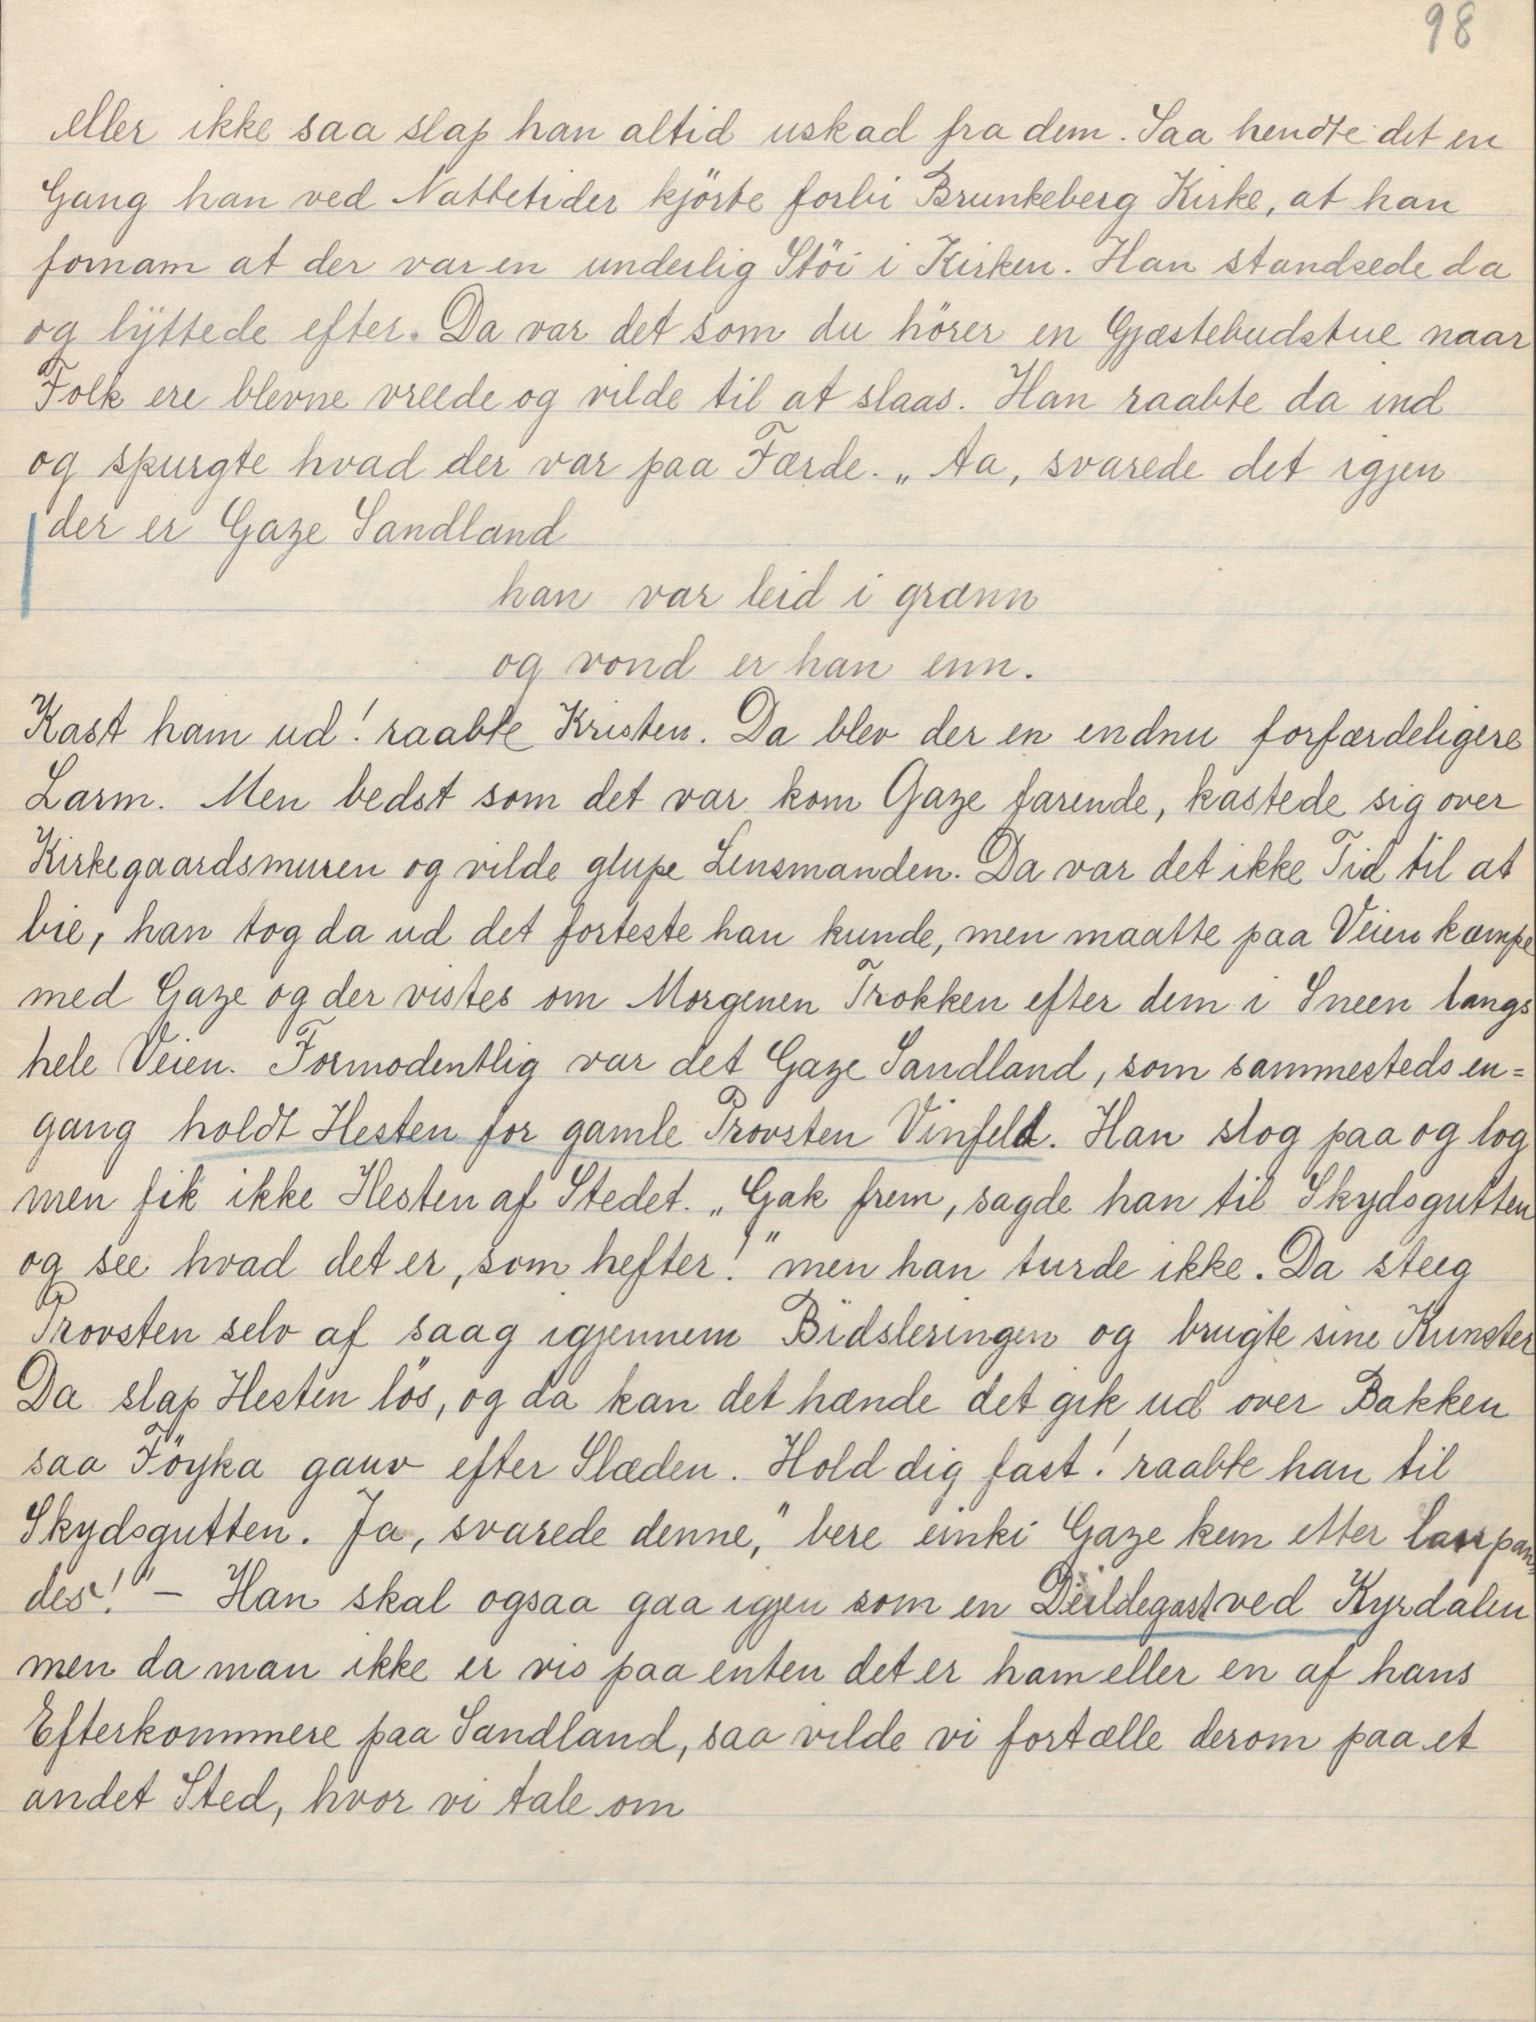 98
eller ikke saa slap han altid uskad fra dem. Saa hendte det en
Gang han ved Nattetider kjörte forbi Brunkeberg Kirke, at han
fornam at der var en underlig Stöi i Kirken. Han standsede da
og lyttede efter. Da var det som du hörer en Gjæstebudstue naar
Folk ere blevne vreede og vilde til at slaas. Han raabte da ind
og spurgte hvad der var paa Færde. „Aa, svarede det igjen
der er Gaze Sandland
han var leid i grænn
og vond er han enn.
Kast ham ud! raabte Kristen. Da blev der en endnu forfærdeligere
Larm. Men bedst som det var kom Gaze farende, kastede sig over
Kirkegaardsmuren og vilde glupe Lensmanden. Da var det ikke Tid til at
bie, han tog da ud det forteste han kunde, men maatte paa Veien kæmpe
med Gaze og der vistes om Morgenen Trokken efter dem i Sneen langs
hele Veien. Formodentlig var det Gaze Sandland, som sammesteds en=
gang holdt Hesten for gamle Provsten Vinfeld. Han slog paa og log
men fik ikke Hesten af Stedet. „Gak frem, sagde han til Skydsgutten
og see hvad det er, som hefter!" men han turde ikke. Da steeg
Provsten selv af saag igjennem Bidsleringen og brugte sine Kunster
Da slap Hesten lös, og da kan det hænde det gik ud over Bakken
saa Föyka gauv efter Slæden. Hold dig fast! raabte han til
Skydsgutten. Ja, svarede denne, "bere einki Gaze kem etter laspan=
des!" — Han skal ogsaa gaa igjen som en Deildegast ved Kyrdalen
men da man ikke er vis paa enten det er ham eller en af hans
Efterkommere paa Sandland, saa vilde vi fortælle derom paa et
andet Sted, hvor vi tale om